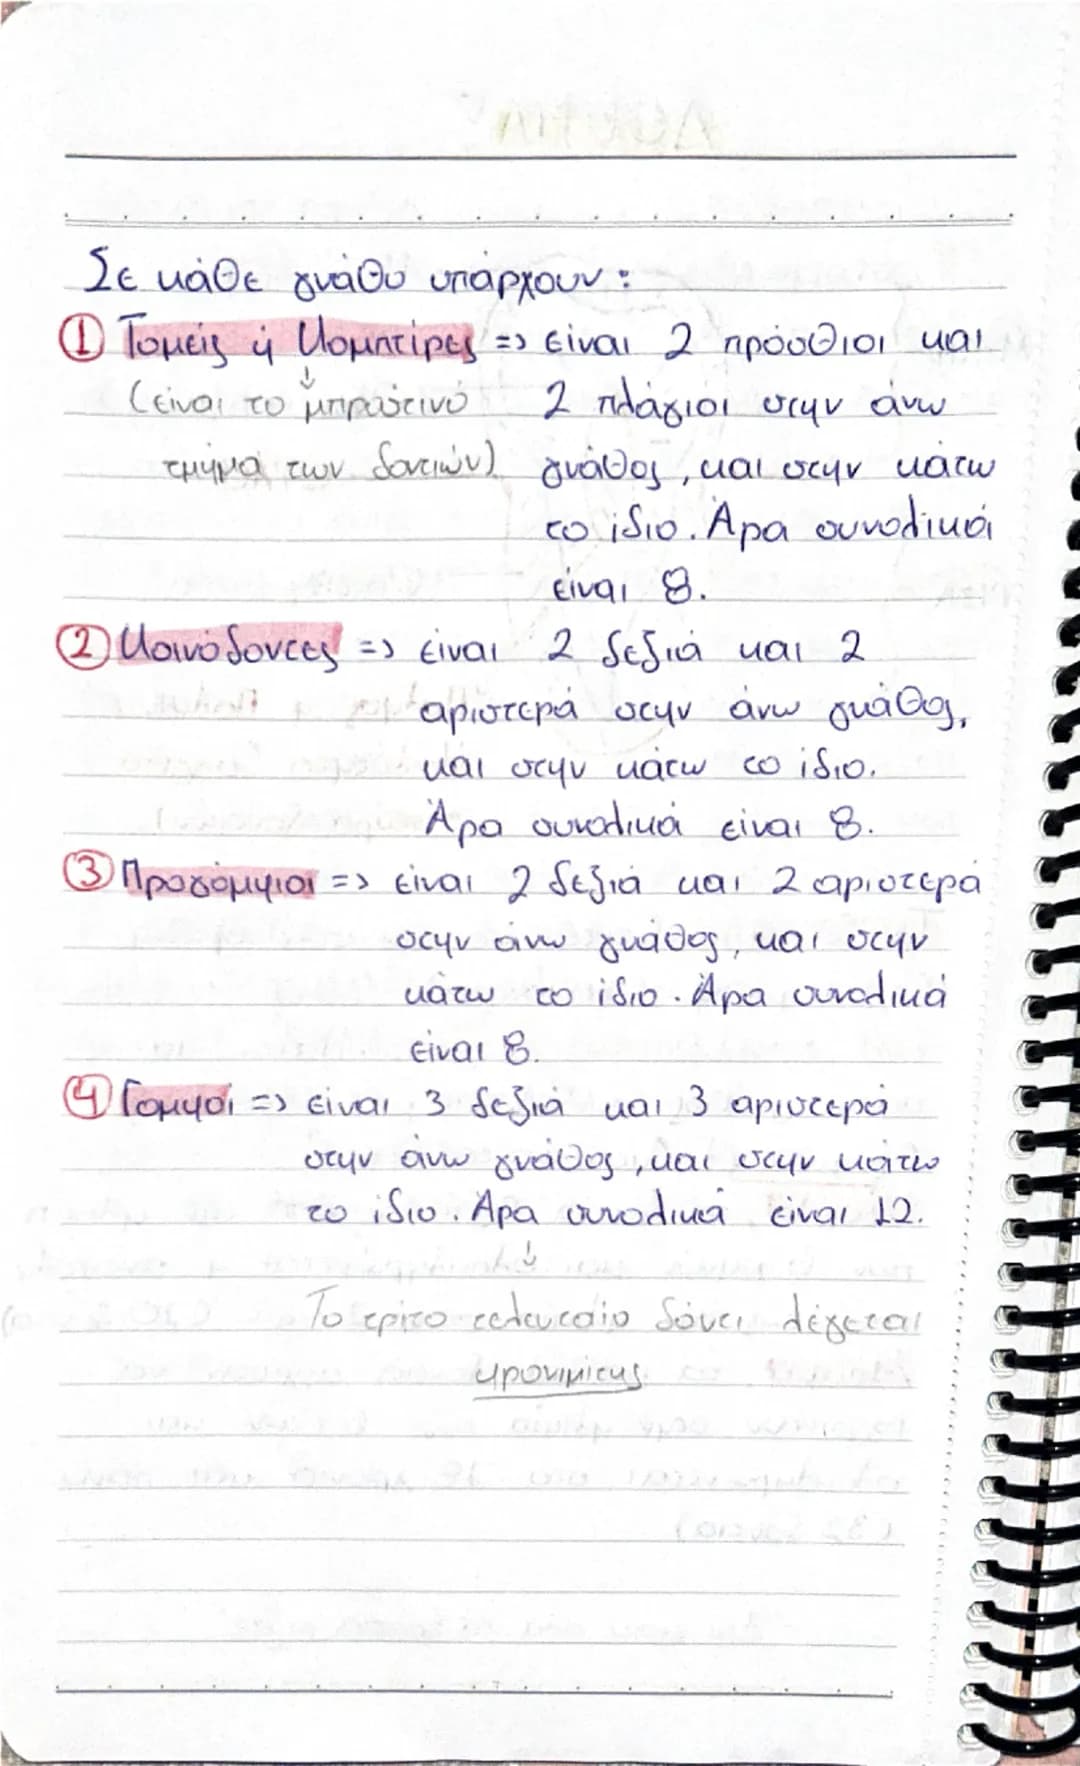 Σε κάθε γνάθο υπάρχουν:
① Τομείς ή Κοπτήρες => είναι 2 πρόσθιοι και
(είναι το μπροστινό 2 πλάγιοι στην άνω
τμήμα των δοντιών) γνάθος, και στην κάτω
το ίδιο. Άρα συνολικά
είναι 8.
② Κοινόδοντες => είναι 2 δεξιά και 2
αριστερά στην άνω γνάθος,
και στην κάτω το ίδιο.
Άρα συνολικά είναι 8.
③ Προγόμφιοι => είναι 2 δεξιά και 2 αριστερά
στην άνω γνάθος, και στην
κάτω το ίδιο. Άρα συνολικά
είναι 8.
④ Γομφοί => είναι 3 δεξιά και 3 αριστερά
στην άνω γνάθος, και στην κάτω
το ίδιο. Άρα συνολικά είναι 12.
Το τρίτο τελευταίο δόντι λέγεται
φρονιμίτης